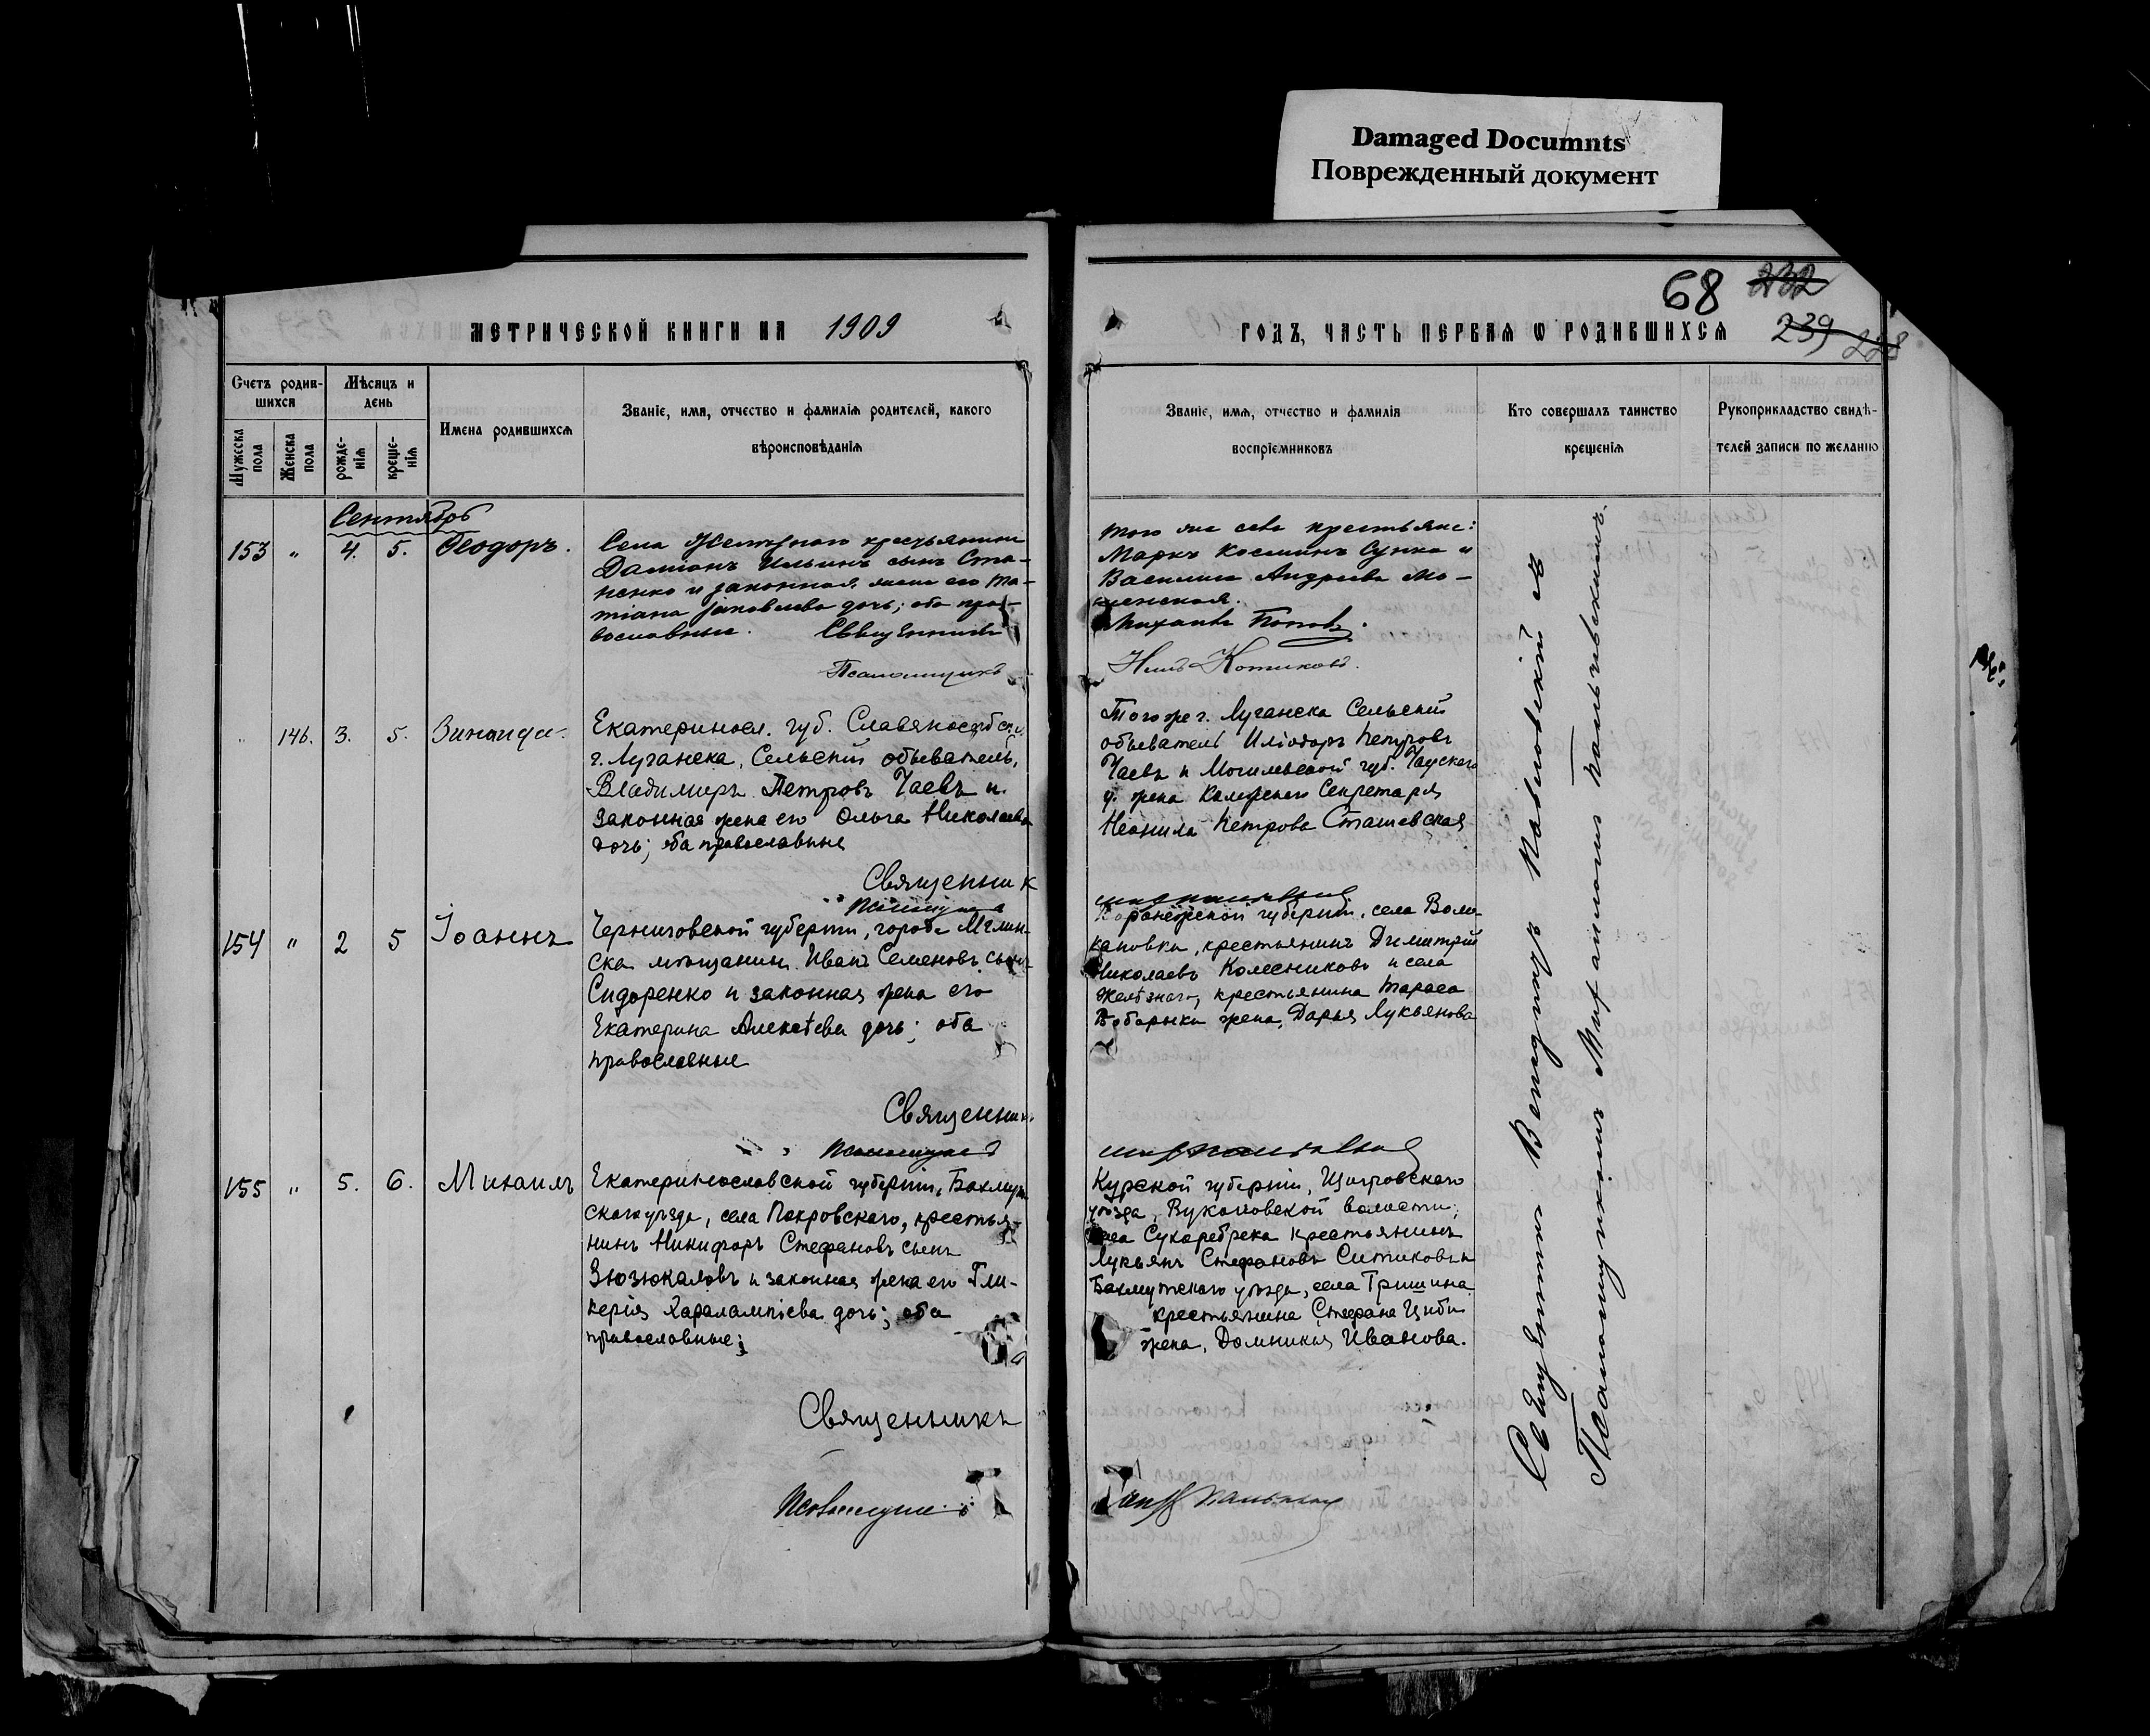 Damaged Documnts
Поврежденный документ
68
232
239
228
МЕТРИЧЕСКОЙ КНИГИ НА 1909
ГОДЪ, ЧАСТЬ ПЕРВАЯ Ѡ РОДИВШИХСЯ
Счетъ родив-
шихся
Мужеска пола
Женска пола
Мѣсяцъ и
день
рожде-
нія
креще-
нія
Имена родившихся
Званіе, имя, отчество и фамилія родителей, какого
вѣроисповѣданія
Званіе, имя, отчество и фамилія
воспріемниковъ
Кто совершалъ таинство
крещенія
Рукоприкладство свидѣ-
телей записи по желанію
Сентябрь
153 " 4. 5. Ѳеодоръ.
Села Желѣзнаго крестьянинъ
Даміанъ Ильинъ сынъ Ста-
ненко и законная жена его Та-
тіана Іаковлева дочь; оба пра-
вославные. Священникъ
Псаломщикъ
того же села крестьяне:
Маркъ Косминъ Сунка и
Василиса Андреева Мо-
Михаилъ Поповъ.
Нилъ Котиковъ.
146. 3. 5. Зинаида.
Екатериносл. губ. Славяносербск. у.
г. Луганска, Сельскій обыватель,
Владимиръ Петровъ Чаевъ и
законная жена его Ольга Николаева
дочь; оба православные
Священник
Псаломщикъ
Того же г. Луганска Сельскій
обыватель Иліодоръ Петровъ
Чаевъ и Могилевской губ. Чаускаго
у. жена Коллежскаго Секретаря
Неонила Петрова Сташевская
154 " 2 5 Іоаннъ
Черниговской губерніи, города Мглин-
ска мѣщанинъ Иванъ Семеновъ сынъ
Сидоренко и законная жена его
Екатерина Алексѣева дочь; оба
православные
Священник
Псаломщикъ
Воронежской губерніи, села Воло-
кановки, крестьянинъ Димитрій
Николаевъ Колесниковъ и села
Желѣзнаго, крестьянина Тараса
Бобарыки жена, Дарья Лукьянова
155 " 5. 6. Михаилъ
Екатеринославской губерніи, Бахмут-
скаго уѣзда, села Покровскаго, крестья-
нинъ Никифоръ Стефановъ сынъ
Зюзюкаловъ и законная жена его Гли-
керія Харалампіева дочь; оба
православные;
Священникъ
Псаломщикъ
Курской губерніи, Щигровскаго
уѣзда, Вукаловской волости,
села Сухаребрека крестьянинъ
Лукьянъ Стефановъ Ситиковъ и
Бахмутскаго уѣзда, села Гришина
крестьянина Стефана Циби
жена, Домникія Иванова.
Священникъ Венедиктъ Павловскій съ
Псаломщикомъ Митрофаномъ Пальчевскимъ.